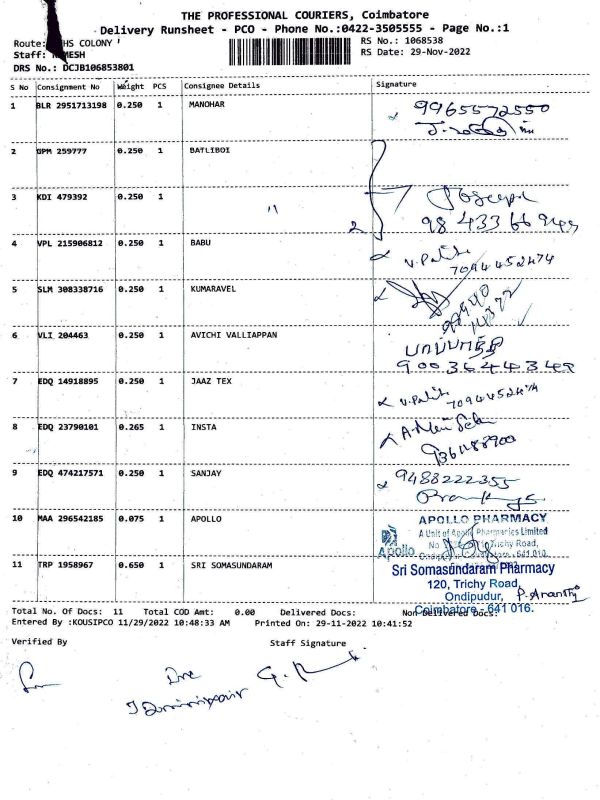 THE PROFESSIONAL COURIERS, Coimbatore
Delivery Runsheet - PCO - Phone No.:0422-3505555 - Page No.:1
Route: HS COLONY '
RS No.: 1068538
Staff: MESH
RS Date: 29-Nov-2022
DRS No.: DCJB106853801
S No Consignment No Weight PCS Consignee Details Signature
1 BLR 2951713198 0.250 1 MANOHAR
9965572550
2 GPM 259777 0.250 1 BATLIBOI
3 KDI 479392 0.250 1
"
Joseph
2
4 VPL 215906812 0.250 1 BABU
7094452474
5 SLM 308338716 0.250 1 KUMARAVEL
6 VLI 204463 0.250 1 AVICHI VALLIAPPAN
9003644348
7 EDQ 14918895 0.250 1 JAAZ TEX
7094452474
8 EDQ 23790101 0.265 1 INSTA
9 EDQ 474217571 0.250 1 SANJAY
9488222355
10 MAA 296542185 0.075 1 APOLLO
APOLLO PHARMACY
A Unit of Apollo Pharmacies Limited
No Trichy Road,
Apollo 641 010.
11 TRP 1958967 0.650 1 SRI SOMASUNDARAM
Sri Somasundaram Pharmacy
120, Trichy Road,
Ondipudur,
Coimbatore - 641 016.
Total No. Of Docs: 11 Total COD Amt: 0.00 Delivered Docs: Non Delivered Docs:
Entered By :KOUSIPCO 11/29/2022 10:48:33 AM Printed On: 29-11-2022 10:41:52
Verified By Staff Signature